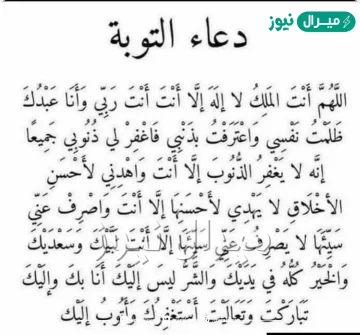 ميرال نيوز
دعاء التوبة
اللَّهُمَّ أَنْتَ المَلِكُ لا إِلهَ إلَّا أنْتَ أنْتَ رَبِّي وَأنَا عَبْدُكَ
ظَلَمْتُ نَفْسِي وَاعْتَرَفْتُ بذَنْبِي فَاغْفِرْ لي ذُنُوبِي جَمِيعًا
إنَّه لا يَغْفِرُ الذُّنُوبَ إلَّا أنْتَ وَاهْدِنِي لأَحْسَنِ
الأخْلَاقِ لا يَهْدِي لأَحْسَنِهَا إلَّا أنْتَ وَاصْرِفْ عَنِّي
سَيِّئَهَا لا يَصْرِفُ عَنِّي سَيِّئَهَا إلَّا أنْتَ لَبَّيْكَ وَسَعْدَيْكَ
وَالْخَيْرُ كُلُّهُ في يَدَيْكَ وَالشَّرُّ ليسَ إلَيْكَ أنَا بكَ وإلَيْكَ
تَبَارَكْتَ وَتَعَالَيْتَ أَسْتَغْفِرُكَ وَأَتُوبُ إلَيْكَ